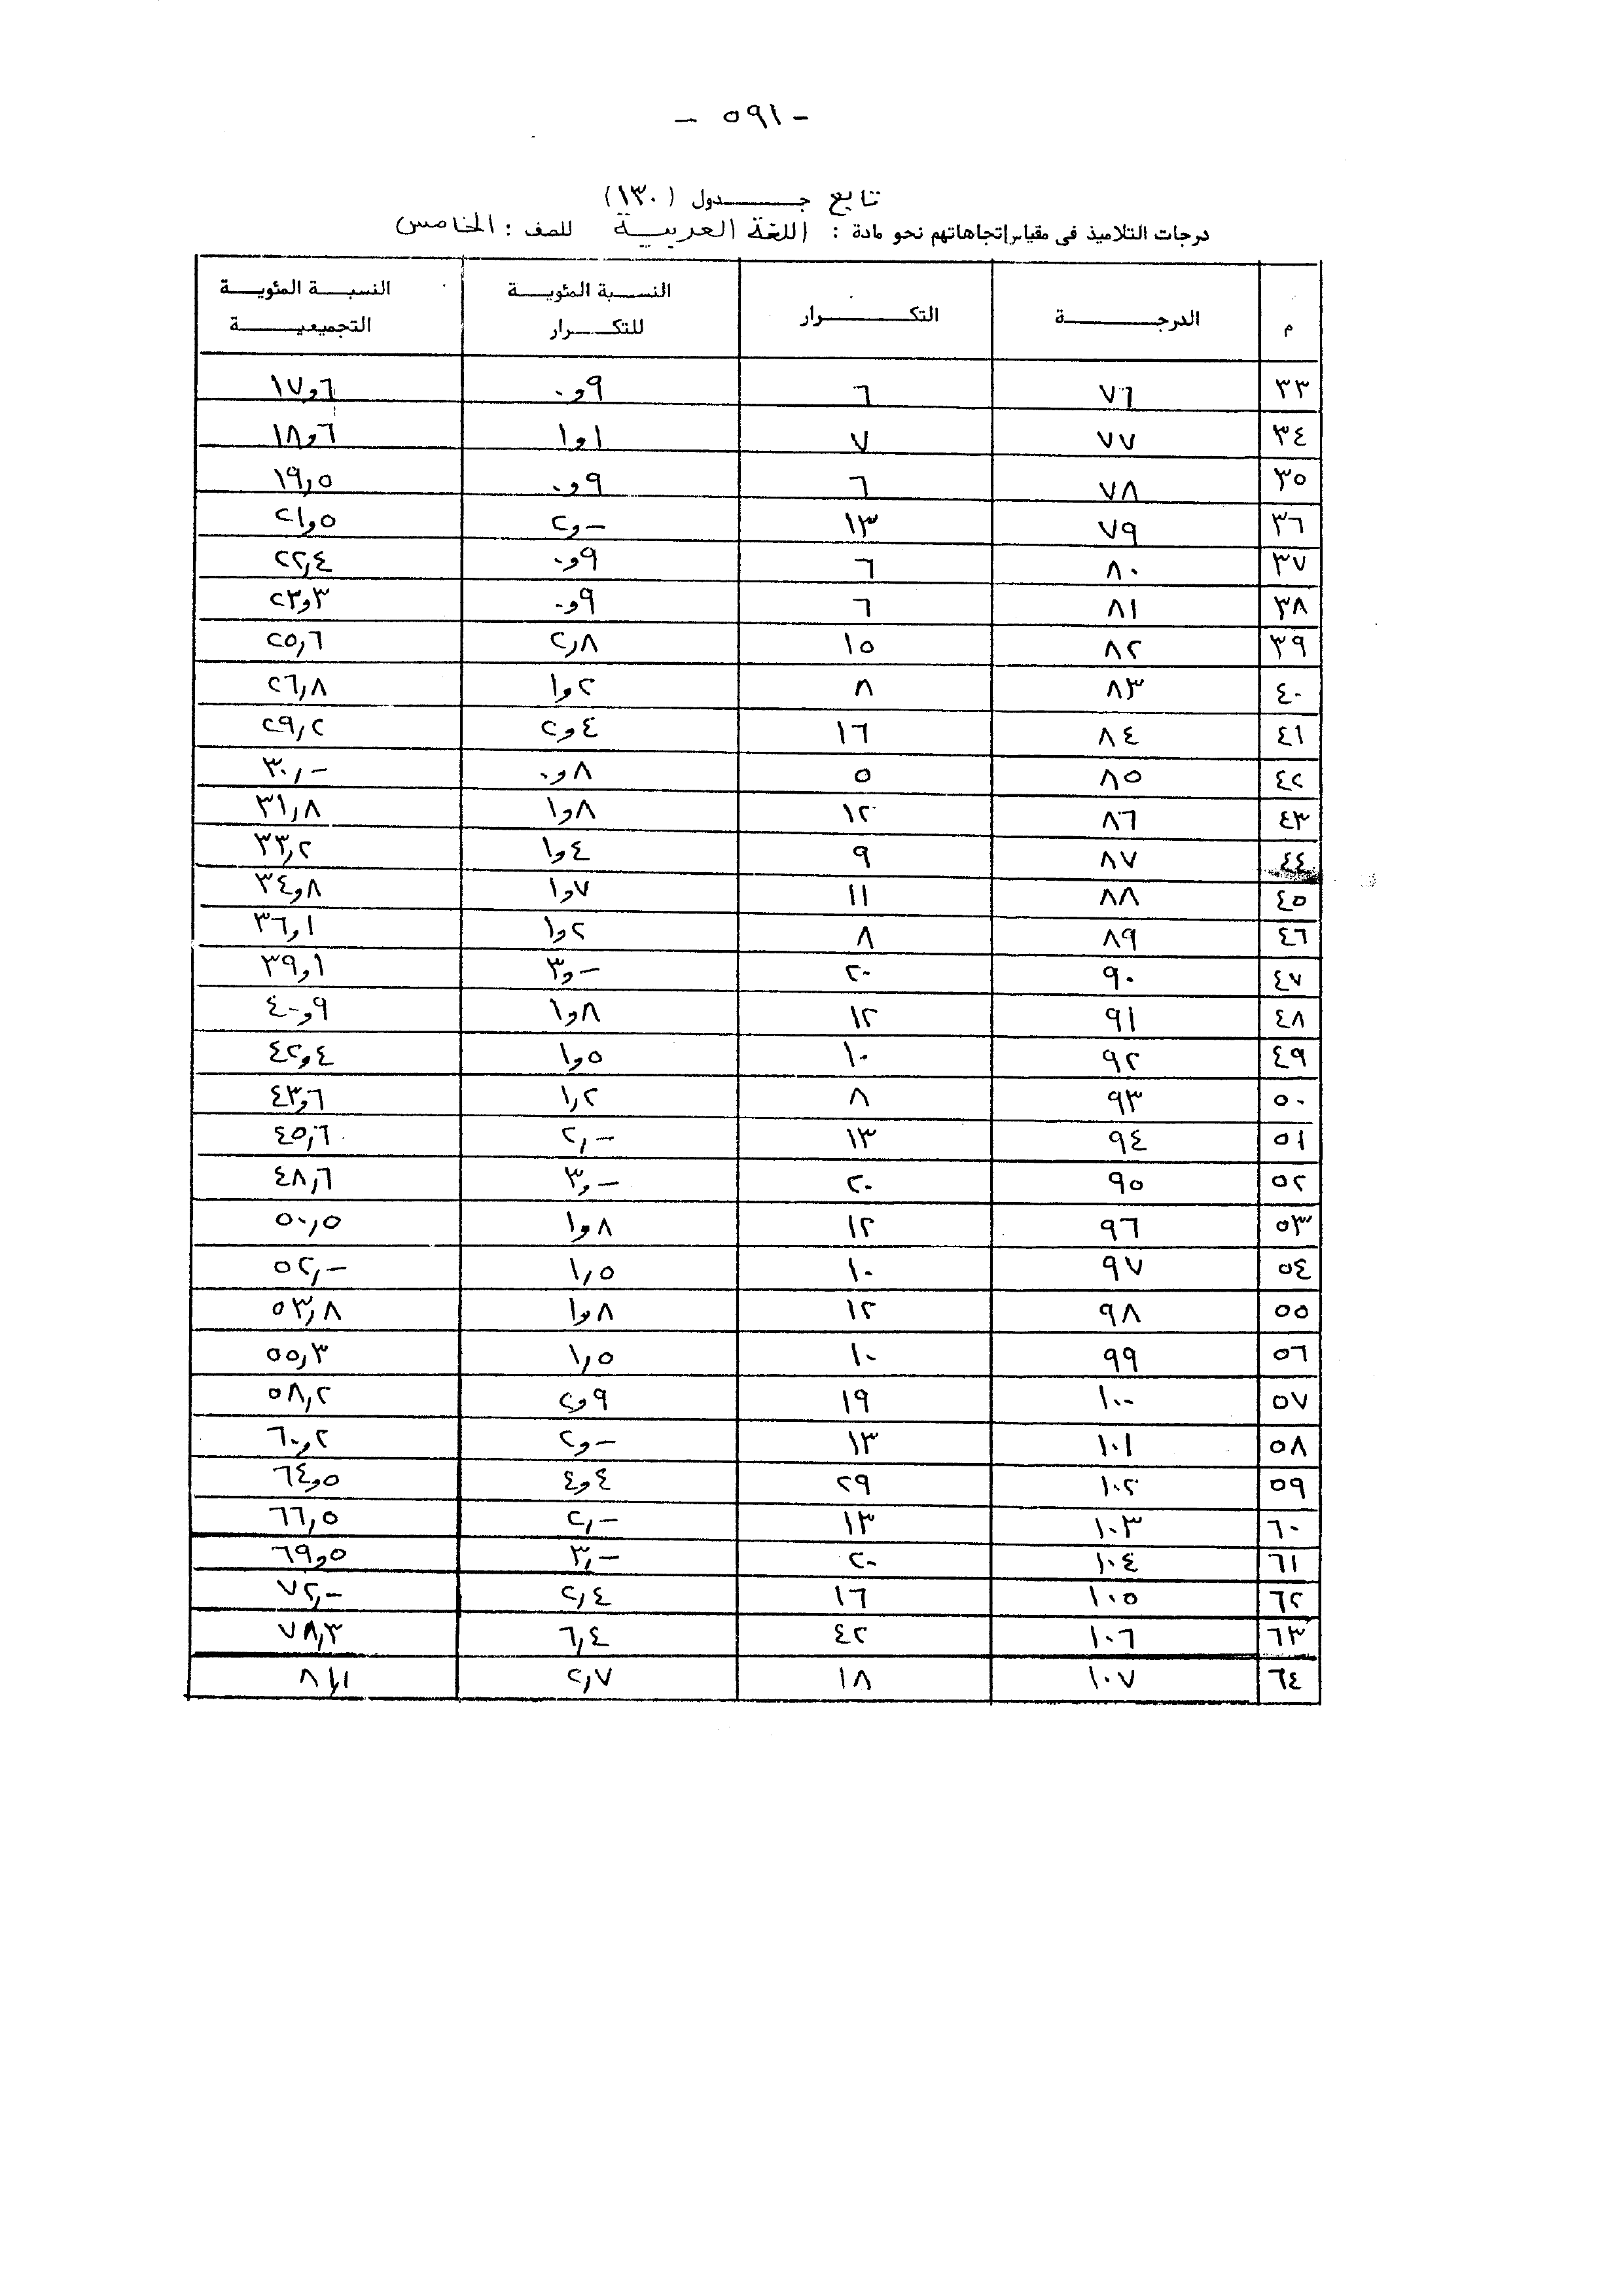 - ٥٩١ -
تابع جدول (١٣٠)
درجات التلاميذ فى مقياس إتجاهاتهم نحو مادة : اللغة العربية للصف : الخامس
م الدرجة التكرار النسبة المئوية للتكرار النسبة المئوية التجميعية
٣٣ ٧٦ ٦ ٩و٠ ٦و١٧
٣٤ ٧٧ ٧ ١و١ ٦و١٨
٣٥ ٧٨ ٦ ٩و٠ ١٩,٥
٣٦ ٧٩ ١٣ -و٢ ٥و٢١
٣٧ ٨٠ ٦ ٩و٠ ٢٢,٤
٣٨ ٨١ ٦ ٩و٠ ٣و٢٣
٣٩ ٨٢ ١٥ ٢,٨ ٢٥,٦
٤٠ ٨٣ ٨ ٢و١ ٢٦,٨
٤١ ٨٤ ١٦ ٤و٢ ٢٩,٢
٤٢ ٨٥ ٥ ٨و٠ ٣٠,-
٤٣ ٨٦ ١٢ ٨و١ ٣١,٨
٤٤ ٨٧ ٩ ٤و١ ٣٣,٢
٤٥ ٨٨ ١١ ٧و١ ٨و٣٤
٤٦ ٨٩ ٨ ٢و١ ١و٣٦
٤٧ ٩٠ ٢٠ -و٣ ١و٣٩
٤٨ ٩١ ١٢ ٨و١ ٩و٤٠
٤٩ ٩٢ ١٠ ٥و١ ٤و٤٢
٥٠ ٩٣ ٨ ١,٢ ٦و٤٣
٥١ ٩٤ ١٣ ٢,- ٤٥,٦
٥٢ ٩٥ ٢٠ -و٣ ٤٨,٦
٥٣ ٩٦ ١٢ ٨و١ ٥٠,٥
٥٤ ٩٧ ١٠ ١,٥ ٥٢,-
٥٥ ٩٨ ١٢ ٨و١ ٥٣,٨
٥٦ ٩٩ ١٠ ١,٥ ٥٥,٣
٥٧ ١٠٠ ١٩ ٩و٢ ٥٨,٢
٥٨ ١٠١ ١٣ -و٢ ٢و٦٠
٥٩ ١٠٢ ٢٩ ٤و٤ ٥و٦٤
٦٠ ١٠٣ ١٣ ٢,- ٦٦,٥
٦١ ١٠٤ ٢٠ ٣,- ٥و٦٩
٦٢ ١٠٥ ١٦ ٢,٤ ٧٢,-
٦٣ ١٠٦ ٤٢ ٦,٤ ٧٨,٣
٦٤ ١٠٧ ١٨ ٢,٧ ٨١,١